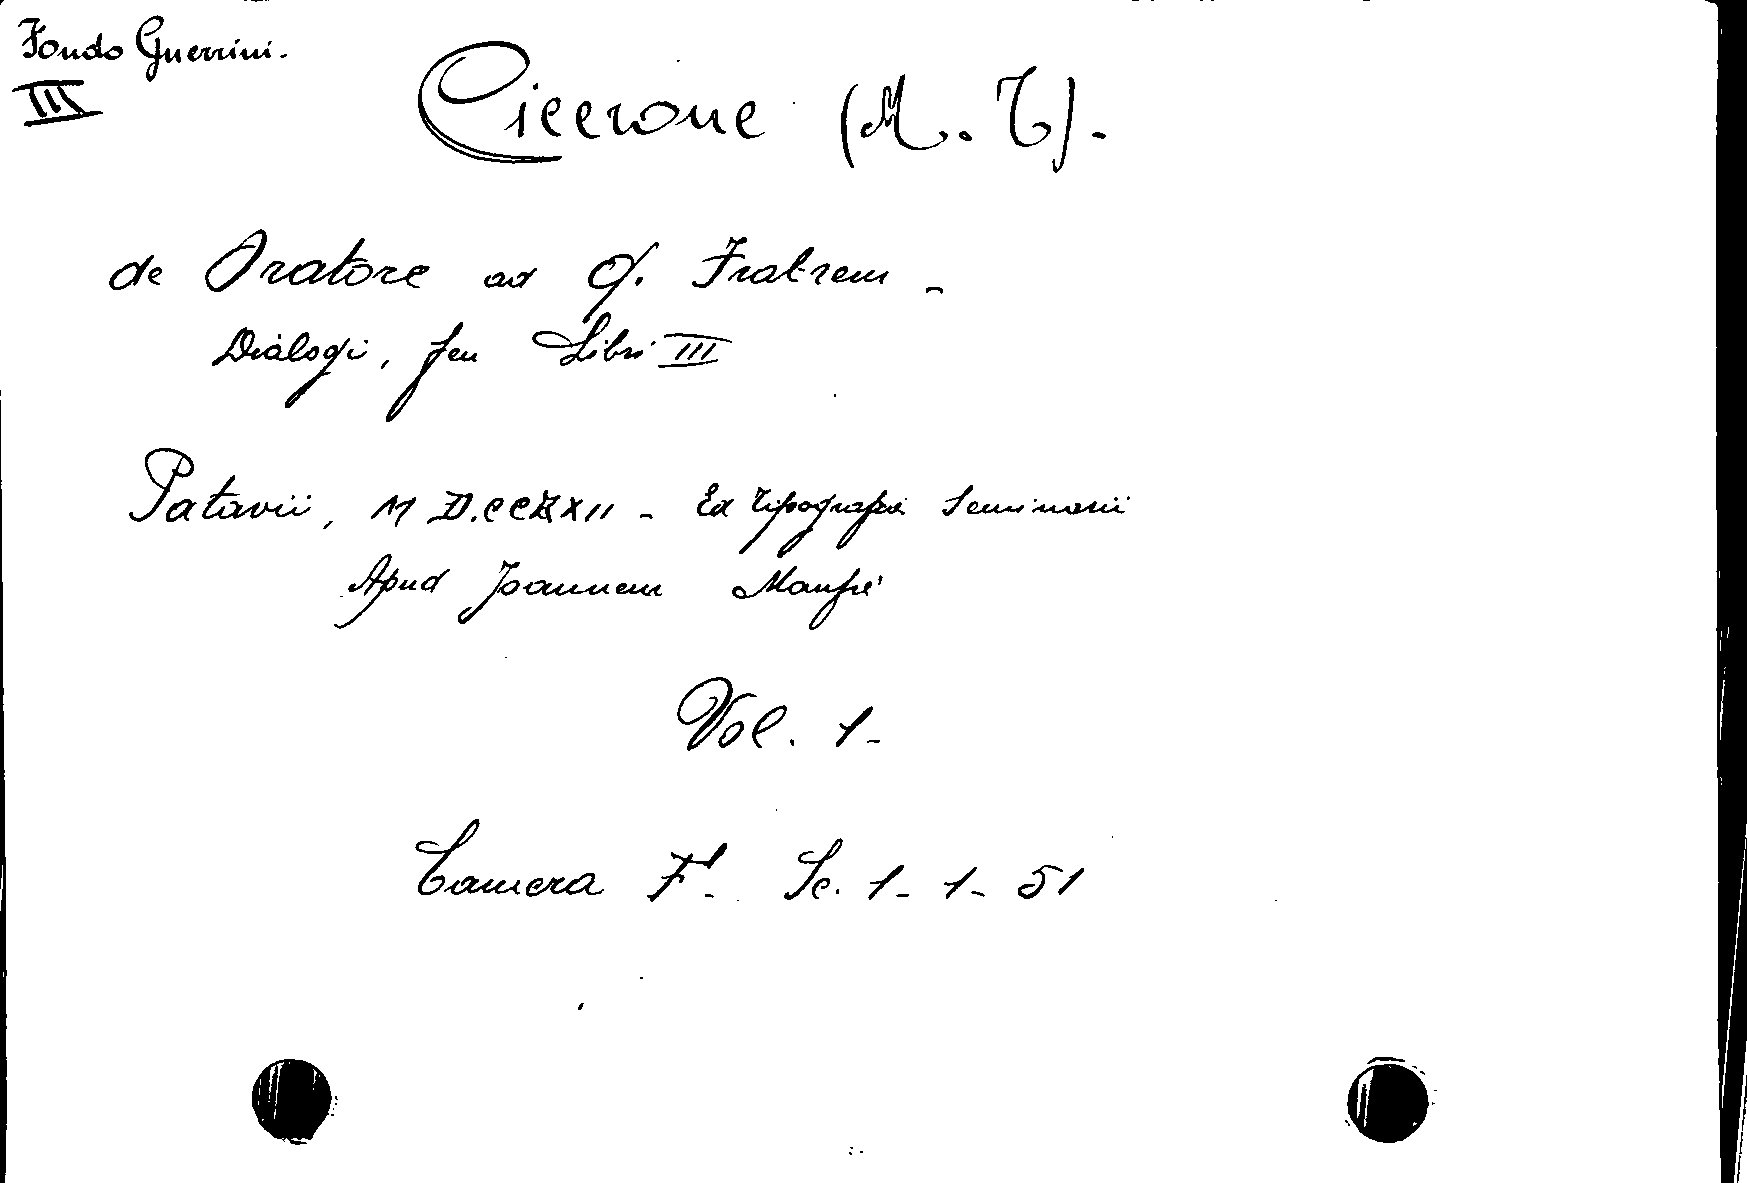 Fondo Guerrini.
III
Cicerone (M. T).
de Oratore ad Q. Fratrem -
Dialogi, seu Libri III
Patavii, M D.CCXXII - Ex Tipografia Seminarii
Apud Joannem Manfré
Vol. 1-
Camera F¹- Sc. 1- 1- 51